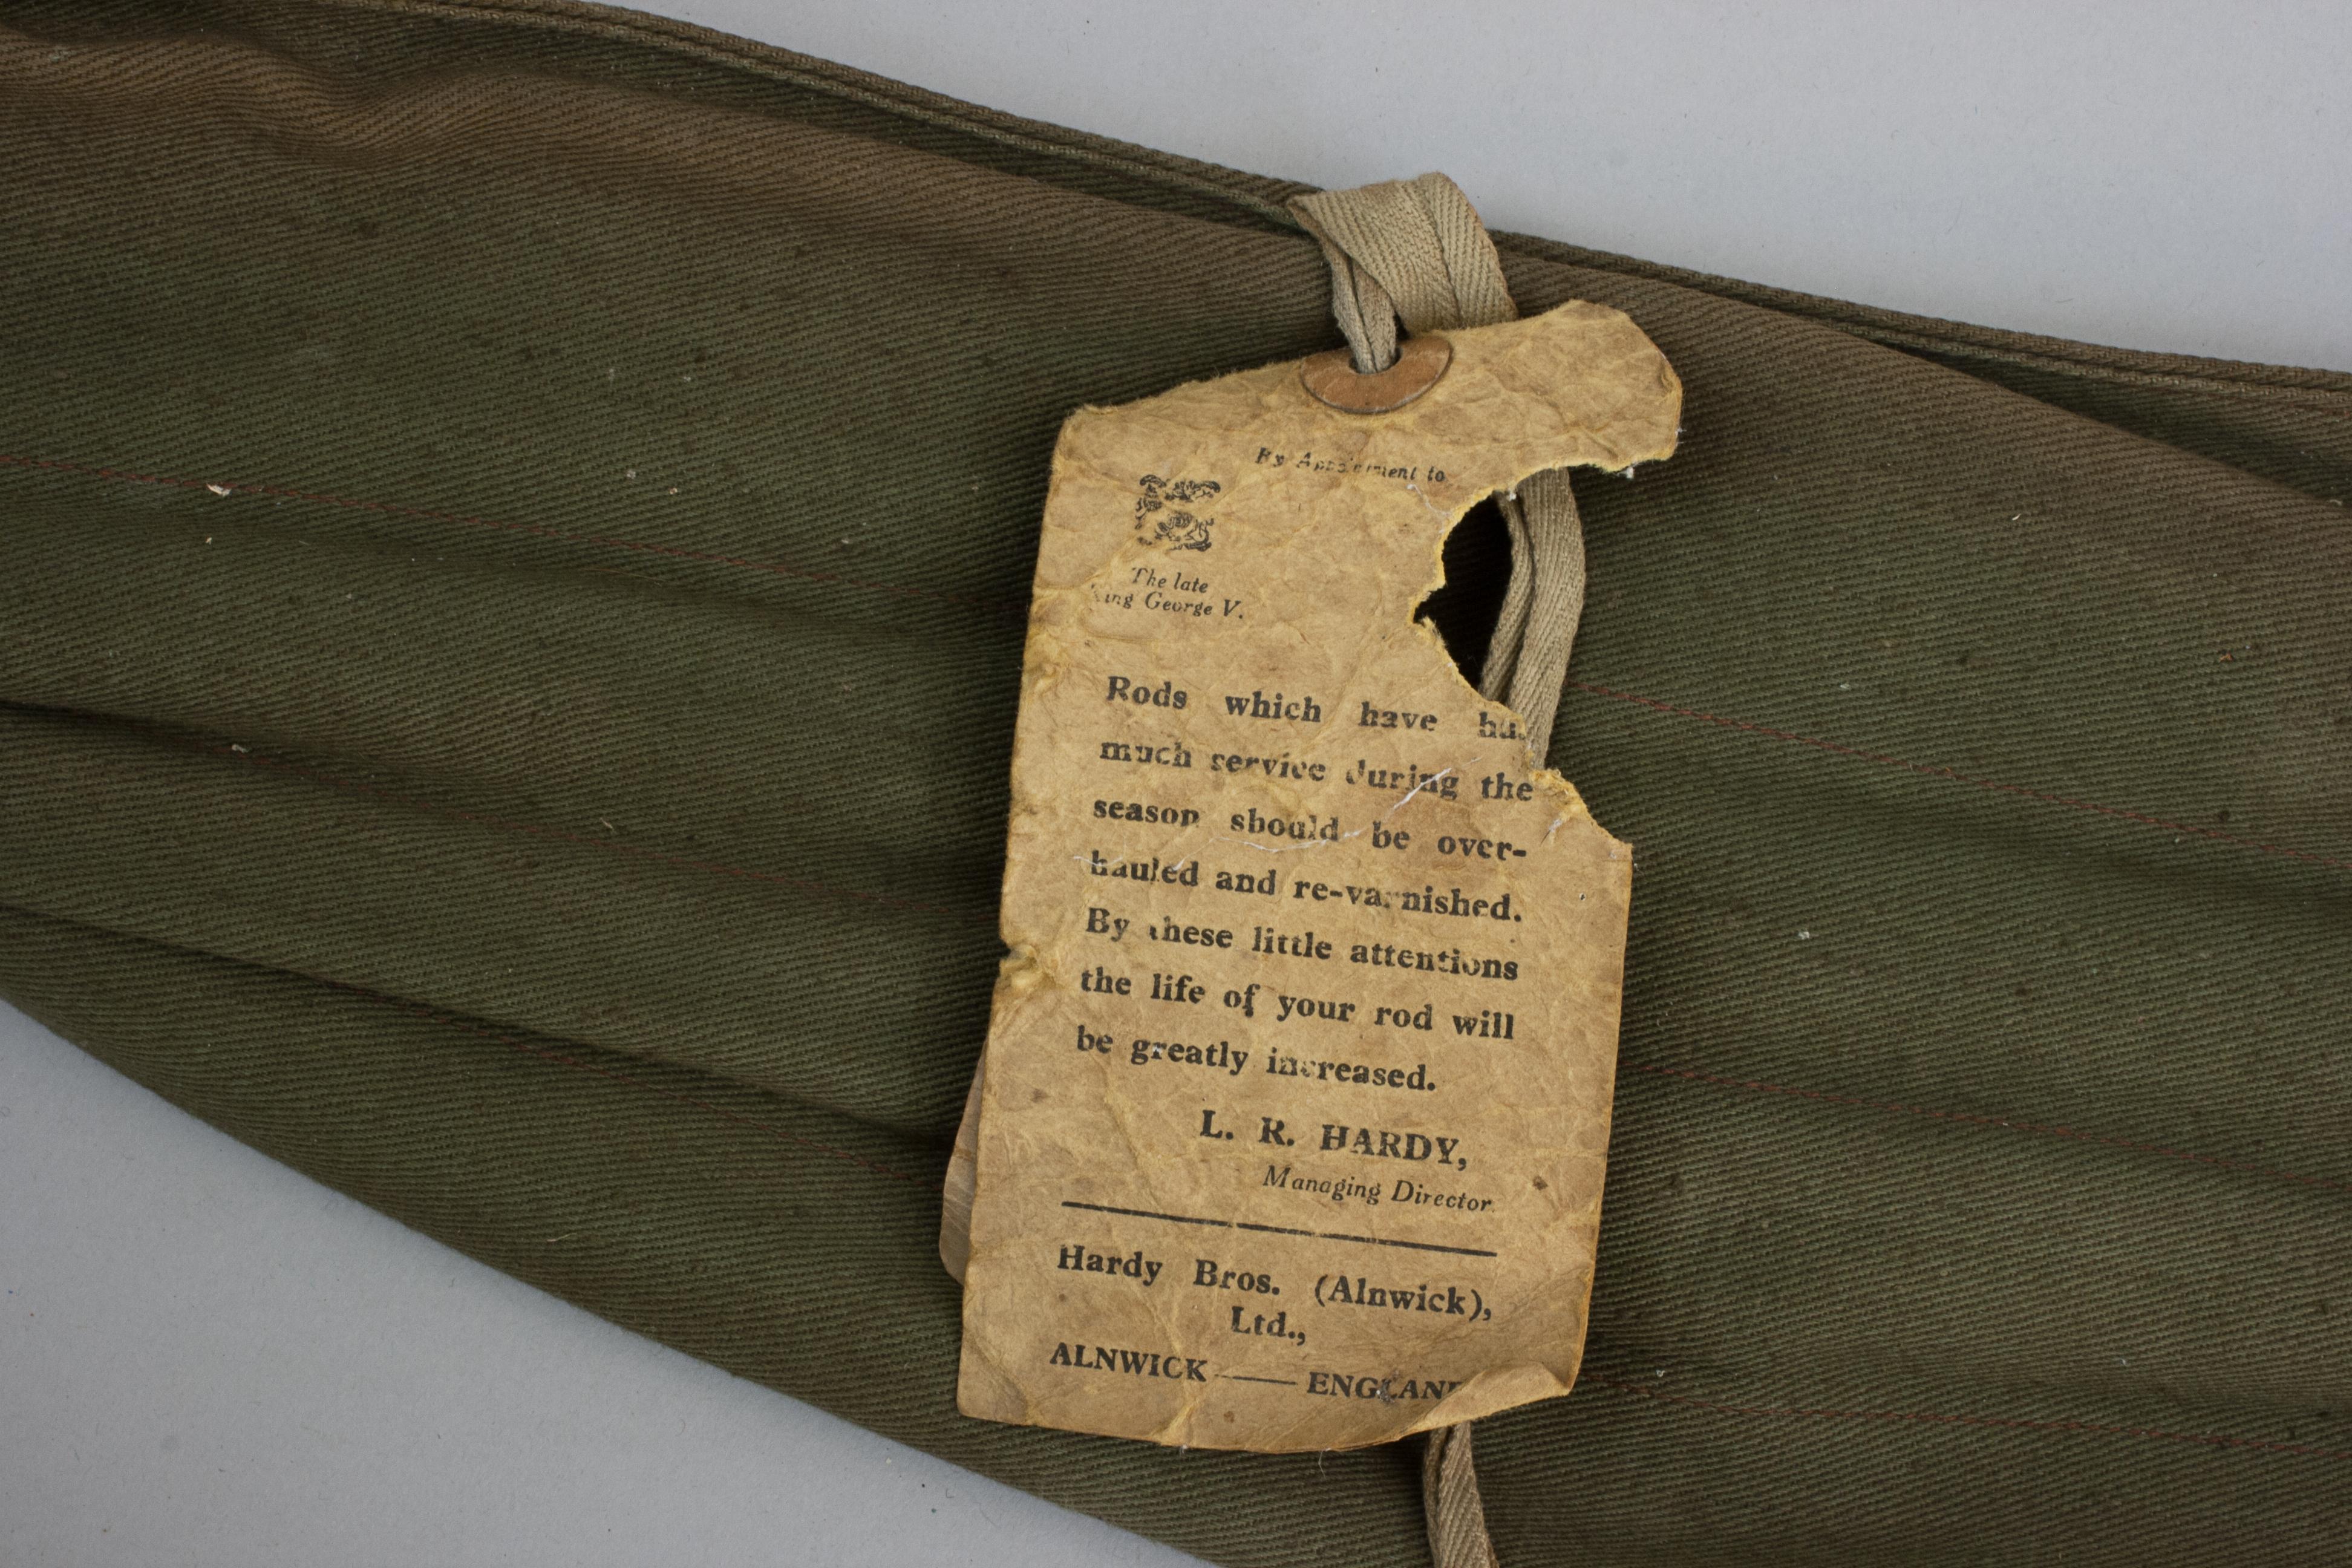 By Appointment to
The late
King George V.
Rods which have
much service during the
season should be over-
hauled and re-varnished.
By these little attentions
the life of your rod will
be greatly increased.
L. R. HARDY,
Managing Director
Hardy Bros. (Alnwick),
Ltd.,
ALNWICK — ENGLAND